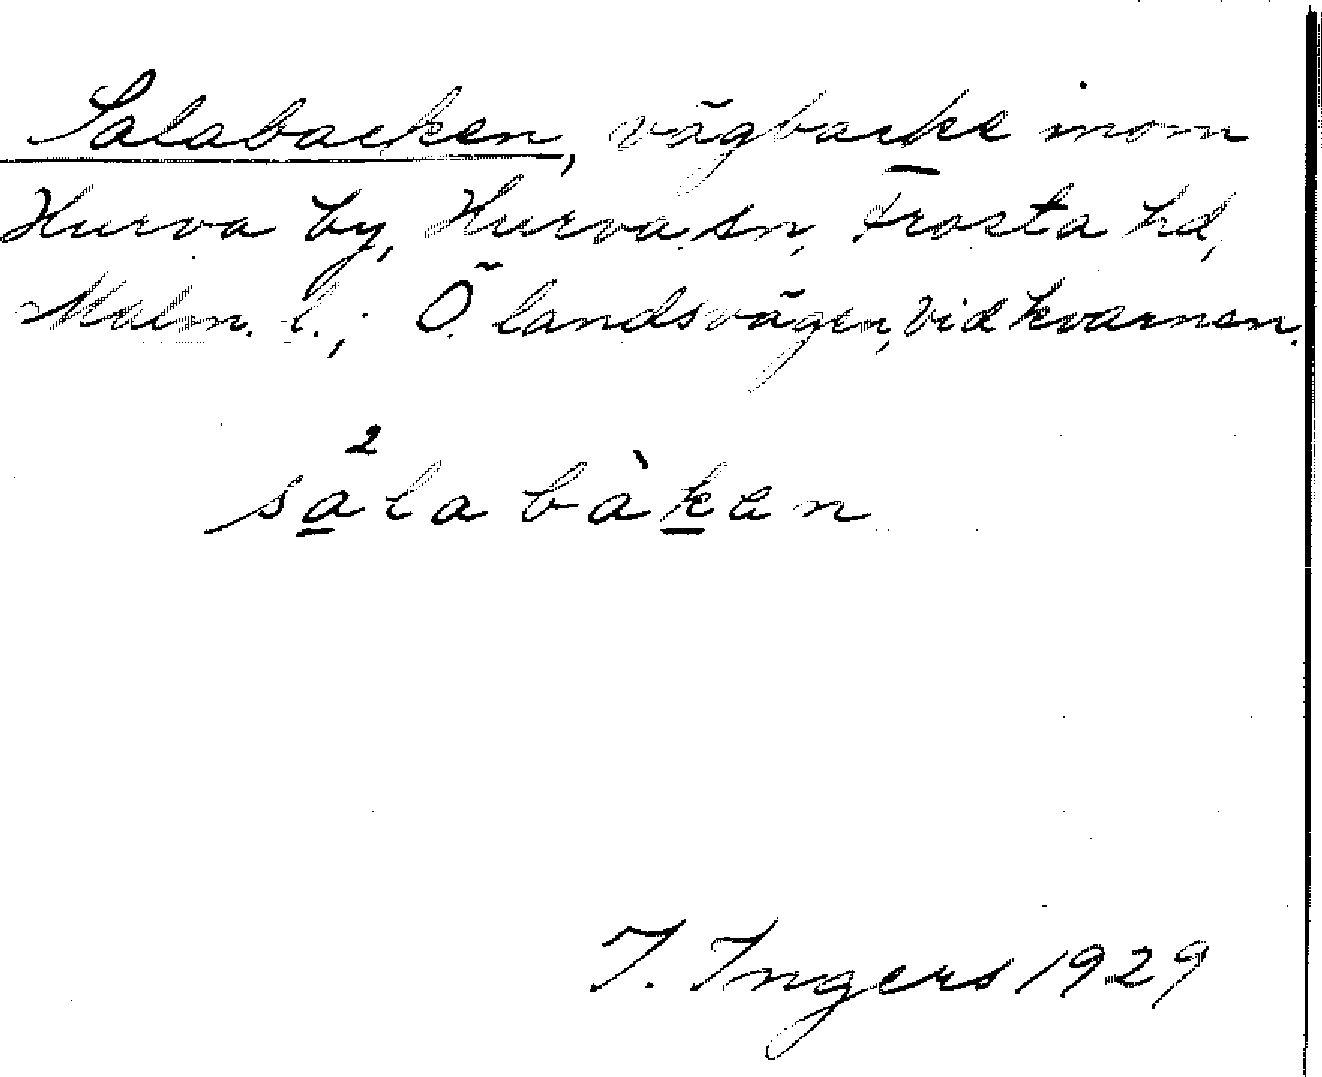 Salabacken, vägbacke inom
Hurva by, Hurva sn, Frosta hd,
Malm. l.; Ö. landsvägen, vid kvarnen.
sa̱²la bàḵen
I. Ingers 1929